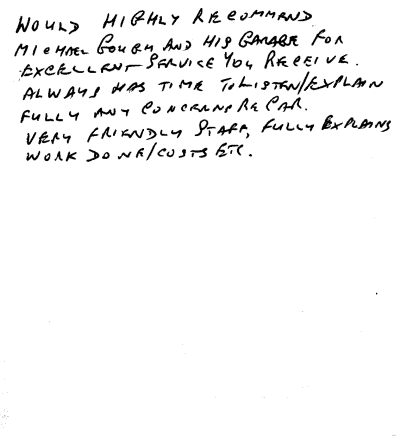 WOULD HIGHLY RECOMMEND
MICHAEL GOUGH AND HIS GARAGE FOR
EXCELLENT SERVICE YOU RECEIVE.
ALWAYS HAS TIME TO LISTEN/EXPLAIN
FULLY ANY CONCERNS RE CAR.
VERY FRIENDLY STAFF, FULLY EXPLAINS
WORK DONE/COSTS ETC.